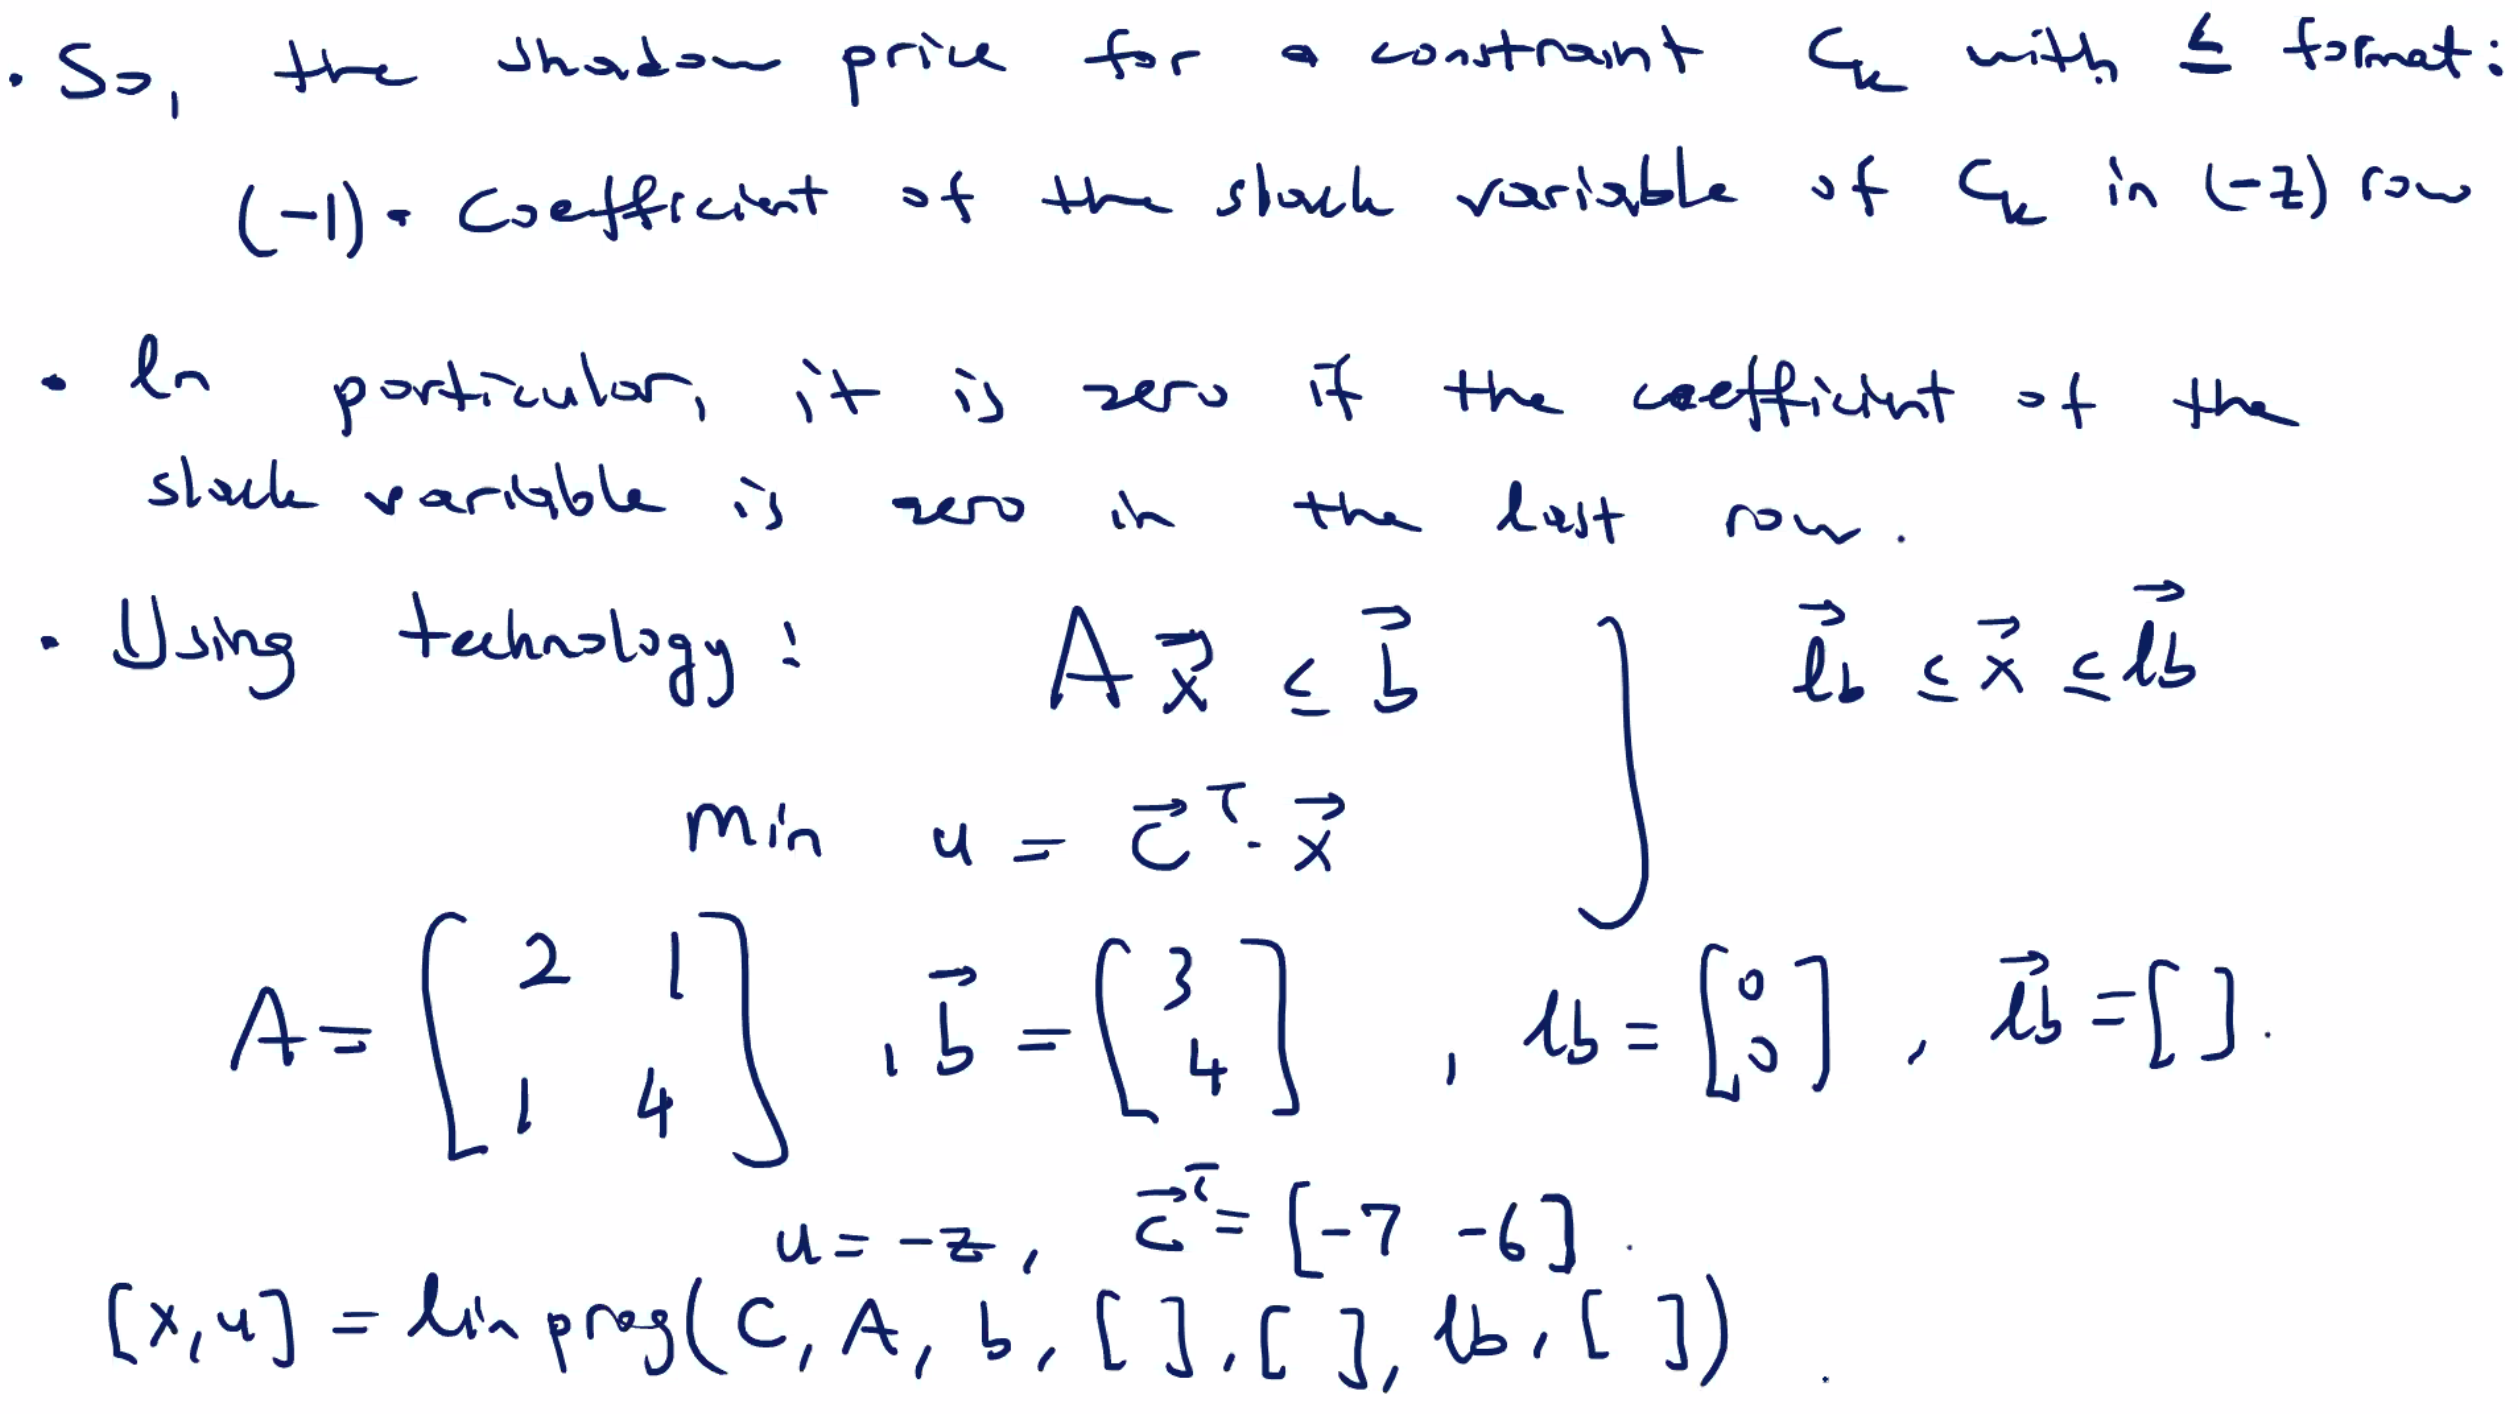 • So, the shadow price for a constraint Cₖ with ≤ format:
(-1) • Coefficient of the slack variable of Cₖ in (-z) row
• In particular, it is zero if the coefficient of the
slack variable is zero in the last row.
• Using technology: A x⃗ ≤ b⃗ } l⃗b ≤ x⃗ ≤ l⃗b
min u = c⃗ᵀ · x⃗
A = [2 1; 1 4], b⃗ = [3; 4], lb = [0; 0], l⃗b = [ ].
u = -z, c⃗ᵀ = [-7 -6].
[x, u] = linprog(C, A, b, [ ], [ ], lb, [ ]).